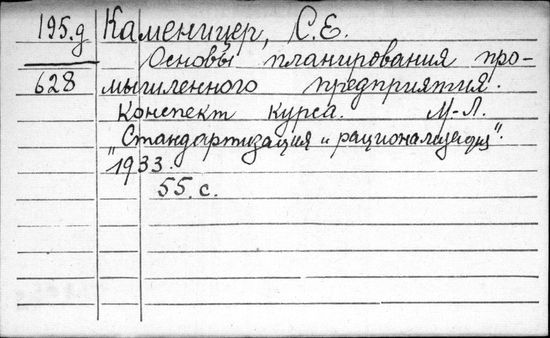 195.д Каменицер, С.Е.
Основы планирования про-
628 мышленного предприятия.
Конспект курса. М-Л.
"Стандартизация и рационализация".
1933.
55.с.